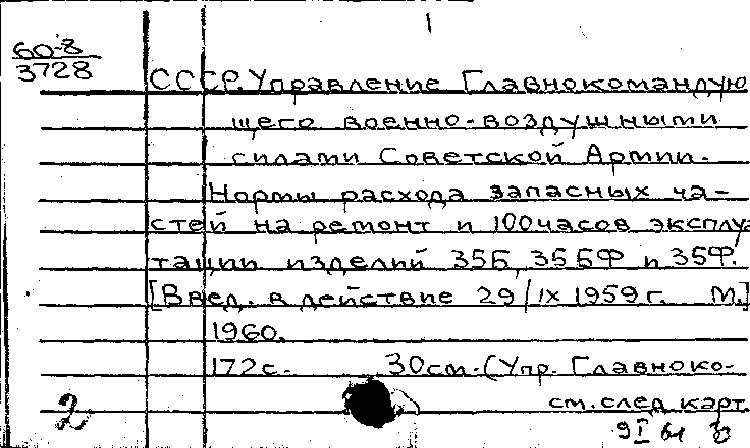 1
60-8
3728
СССР. Управление Главнокомандую
щего военно-воздушными
силами Советской Армии.
Нормы расхода запасных ча-
стей на ремонт и 100 часов эксплуа
тации изделий 35Б, 35БФ и 35Ф.
[Введ. в действие 29/IX 1959г. М.]
1960.
172с. 30см. (Упр. Главноко-
см. след карт
2
9 I 61